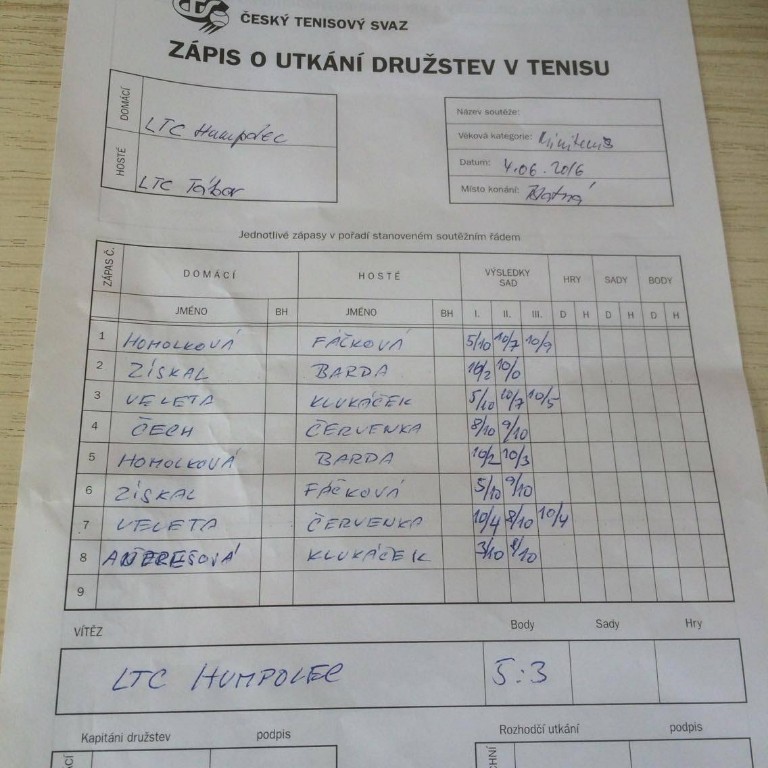 ČTS
ČESKÝ TENISOVÝ SVAZ
ZÁPIS O UTKÁNÍ DRUŽSTEV V TENISU
DOMÁCÍ LTC Humpolec
HOSTÉ LTC Tábor
Název soutěže:
Věková kategorie: Minitenis
Datum: 4.06.2016
Místo konání: Blatná
Jednotlivé zápasy v pořadí stanoveném soutěžním řádem
ZÁPAS Č. DOMÁCÍ HOSTÉ VÝSLEDKY SAD HRY SADY BODY
JMÉNO BH JMÉNO BH I. II. III. D H D H D H
1 HOMOLKOVÁ FÁČKOVÁ 5/10 10/7 10/9
2 ZÍSKAL BARDA 10/2 10/0
3 VELETA KLUKÁČEK 5/10 10/7 10/5
4 ČECH ČERVENKA 8/10 9/10
5 HOMOLKOVÁ BARDA 10/2 10/3
6 ZÍSKAL FÁČKOVÁ 5/10 9/10
7 VELETA ČERVENKA 10/4 8/10 10/4
8 KLUKÁČEK 3/10
9
VÍTĚZ Body Sady Hry
LTC HUMPOLEC 5:3
Kapitáni družstev podpis Rozhodčí utkání podpis